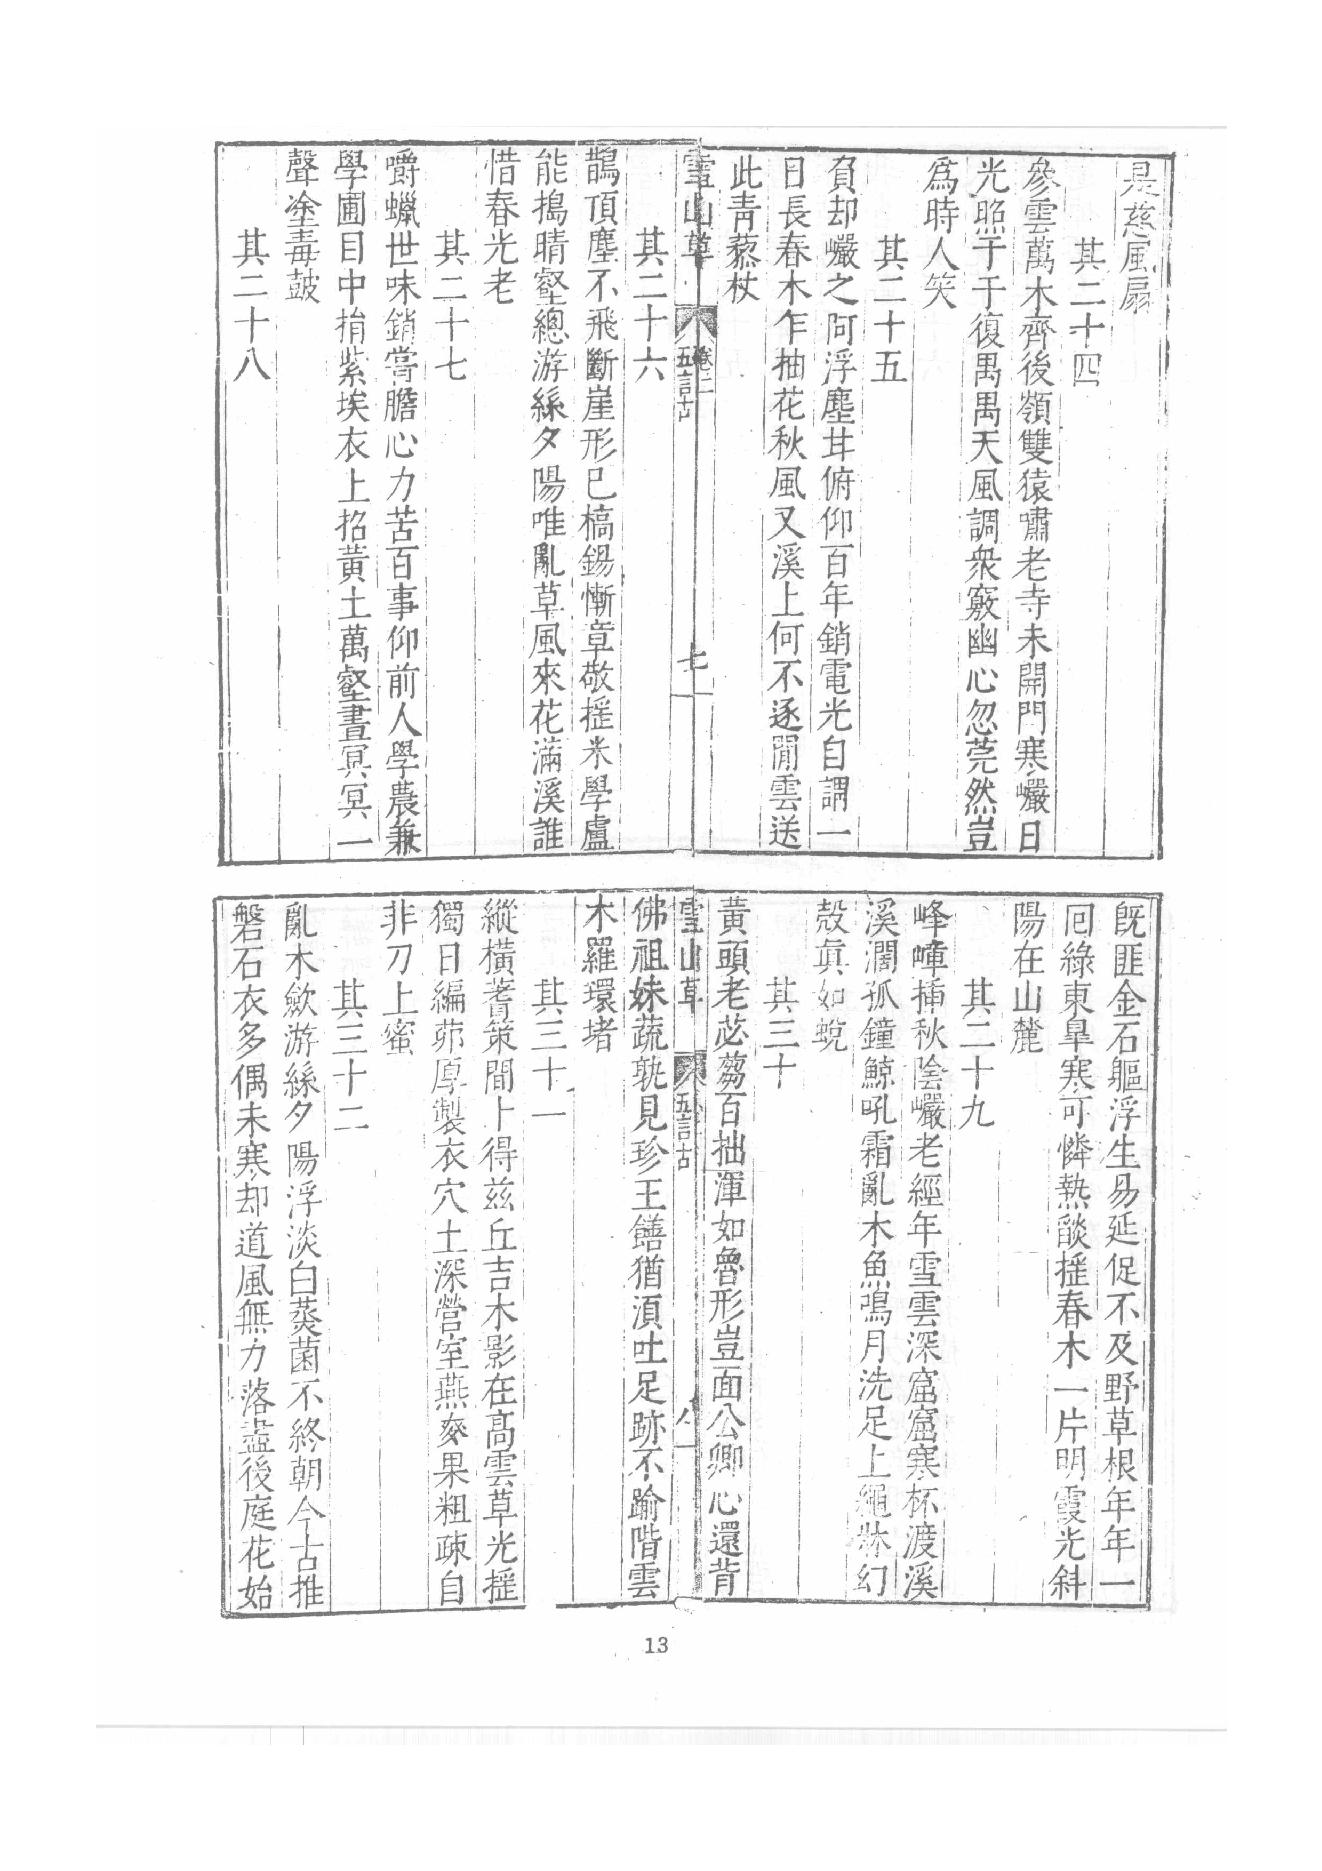 是慈風扇
其二十四
參雲萬木齊後嶺雙猿嘯老寺未開門寒巖日
光照于于復禺禺天風調衆竅幽心忽莞然豈
爲時人笑
其二十五
負却巖之阿浮塵甘俯仰百年銷電光自謂一
日長春木乍抽花秋風又溪上何不逐閒雲送
此靑藜杖
雪山草
卷二
五言古
七
其二十六
鵲頂塵不飛斷崖形已槁錫慚章敬搖米學盧
能搗晴壑總游絲夕陽唯亂草風來花滿溪誰
惜春光老
其二十七
嚼蠟世味銷嘗膽心力苦百事仰前人學農兼
學圃目中捎紫埃衣上招黃土萬壑晝冥冥一
聲塗毒鼓
其二十八
旣匪金石軀浮生易延促不及野草根年年一
囘綠東臯寒可憐熱餤搖春木一片明霞光斜
陽在山麓
其二十九
峰嶂揷秋陰巖老經年雪雲深窟窟寒杯渡溪
溪濶孤鐘鯨吼霜亂木魚鳴月洗足上繩牀幻
殼眞如蛻
其三十
黃頭老苾蒭百拙渾如魯形豈面公卿心還背
雪山草
五言古
八
佛祖妹蔬孰見珍王饍猶湏吐足跡不踰階雲
木羅環堵
其三十一
縱橫蓍策間卜得兹丘吉木影在髙雲草光搖
獨日編茆厚製衣穴土深營室燕麥果粗疎自
非刀上蜜
其三十二
亂木歛游絲夕陽浮淡白蒸菌不終朝今古推
磐石衣多偶未寒却道風無力落盡後庭花始
13